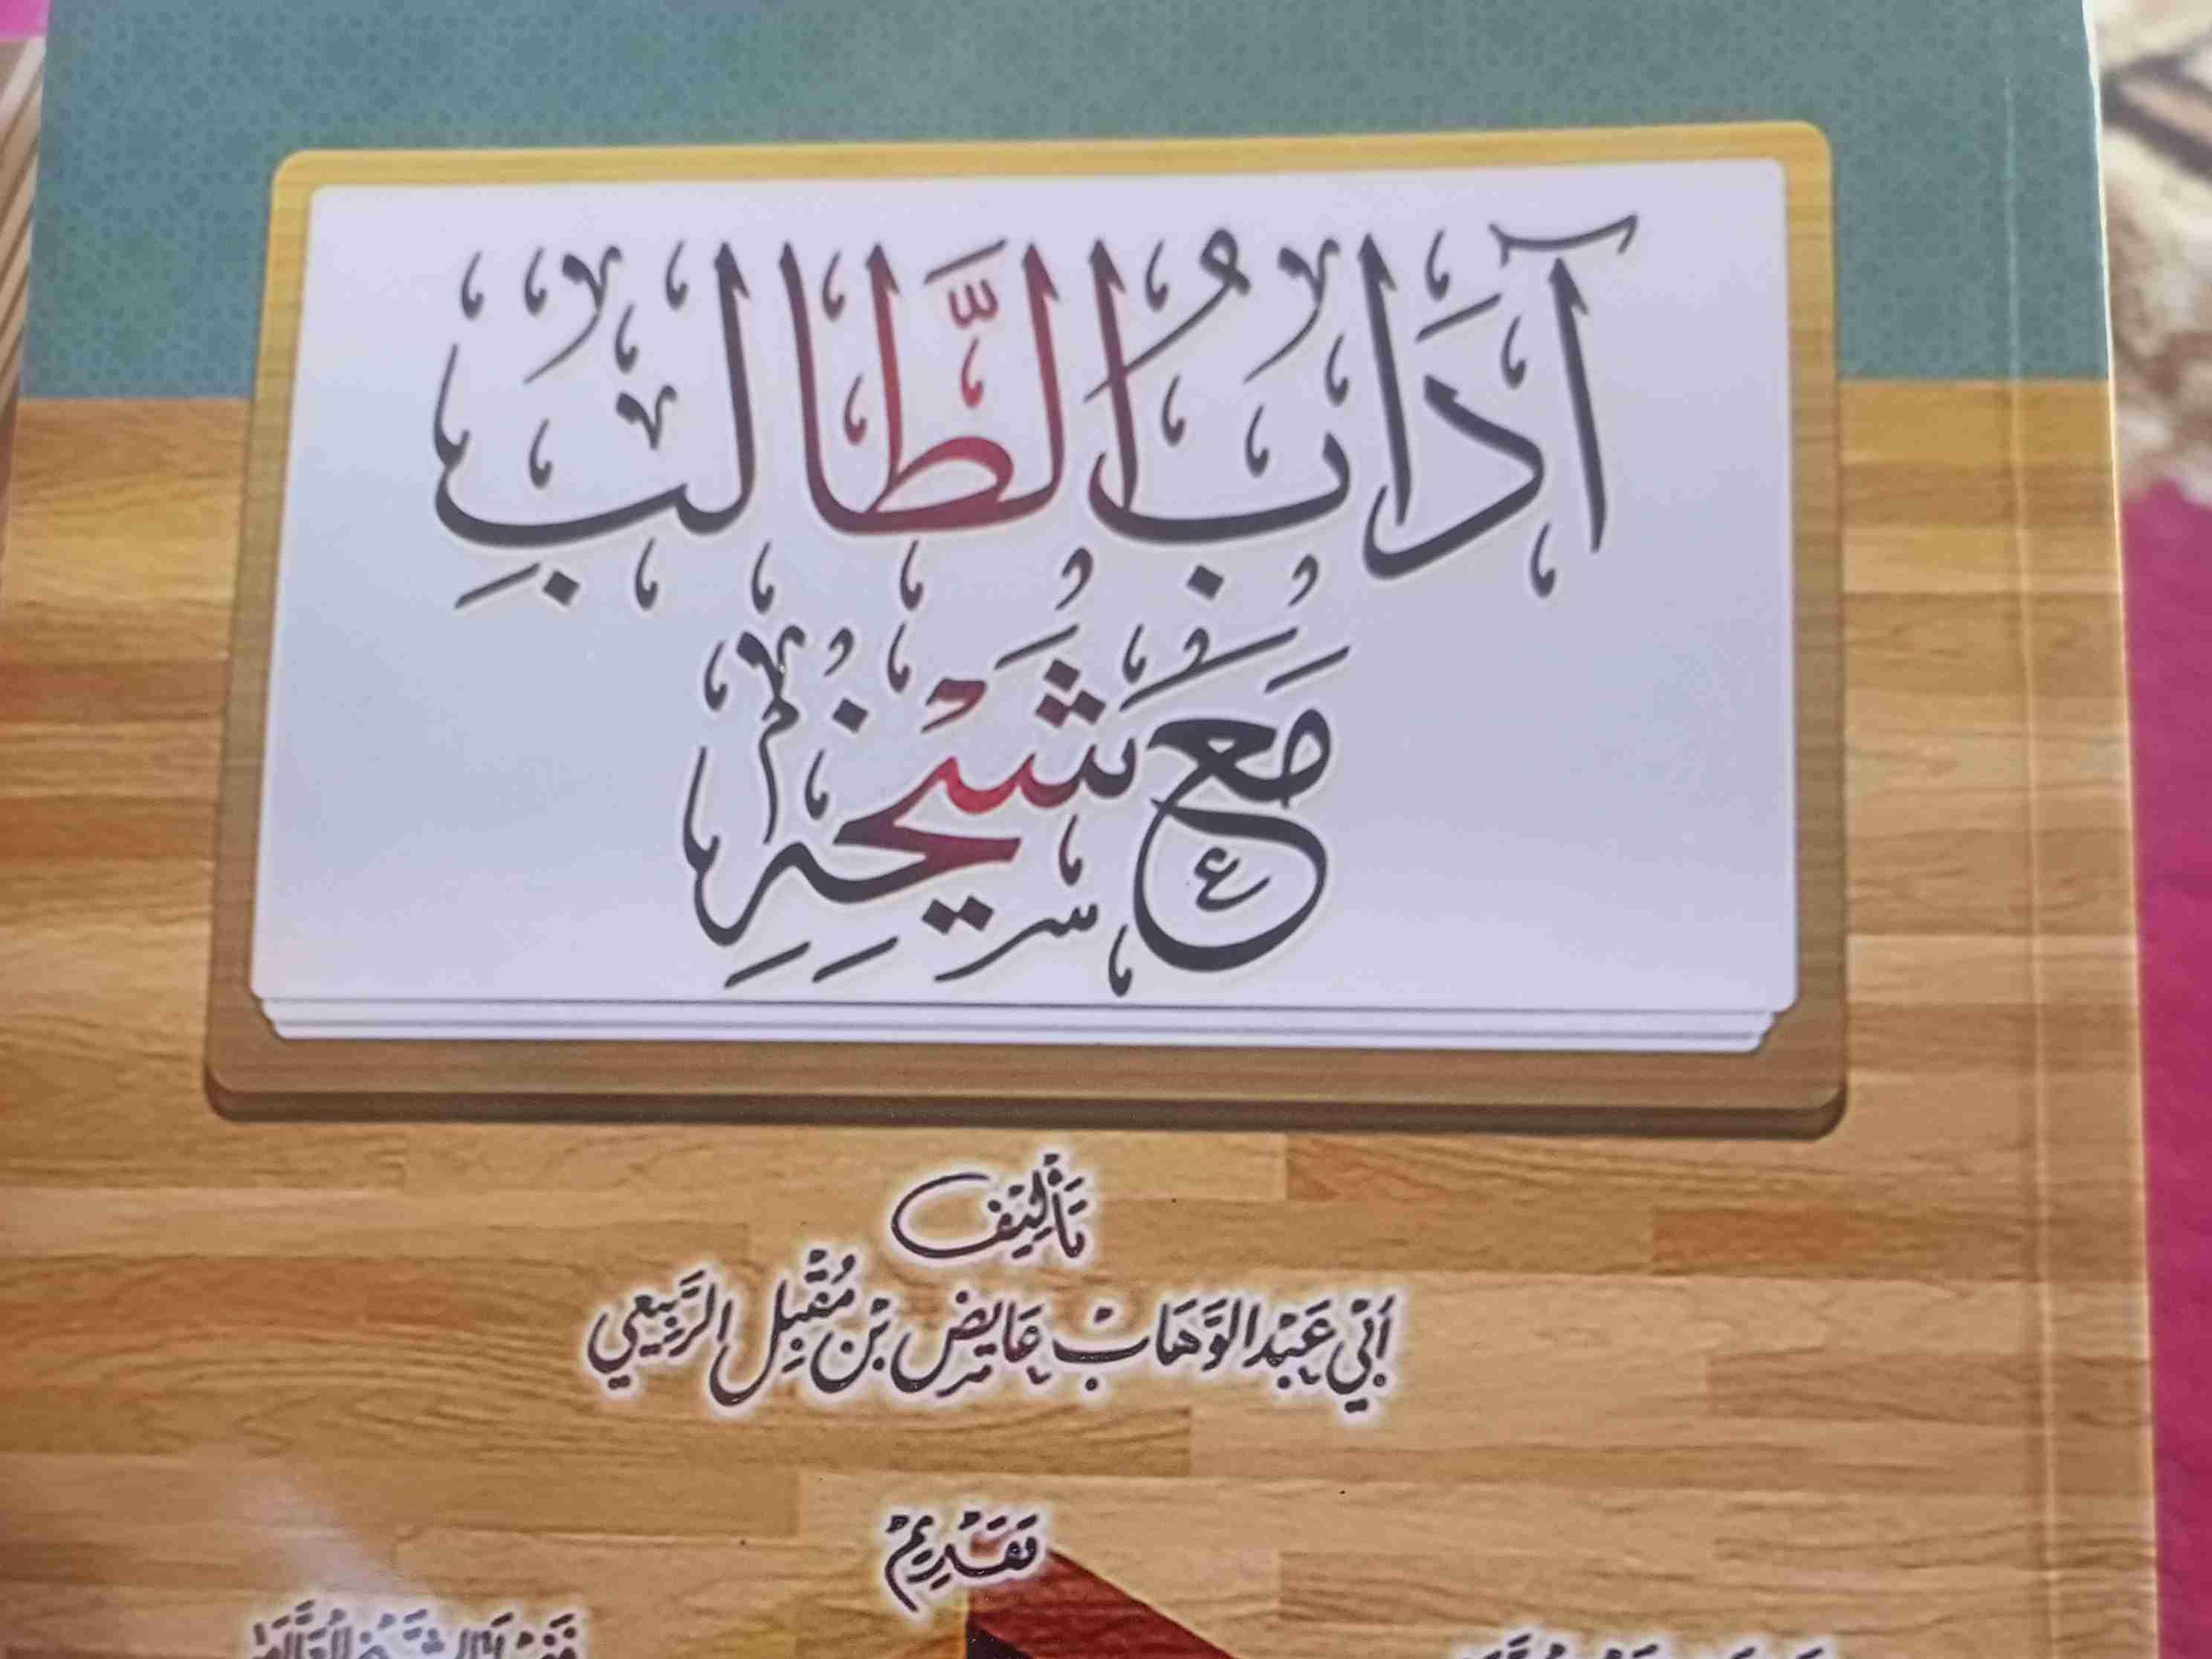 آدَابُ الطَّالِبِ
مَعَ شَيْخِهِ
تَأْلِيْف
أَبِي عَبْدِ الوَهَّابْ عَايِض بْن مُقْبِل الرَّبِيعِي
تَقْدِيْم